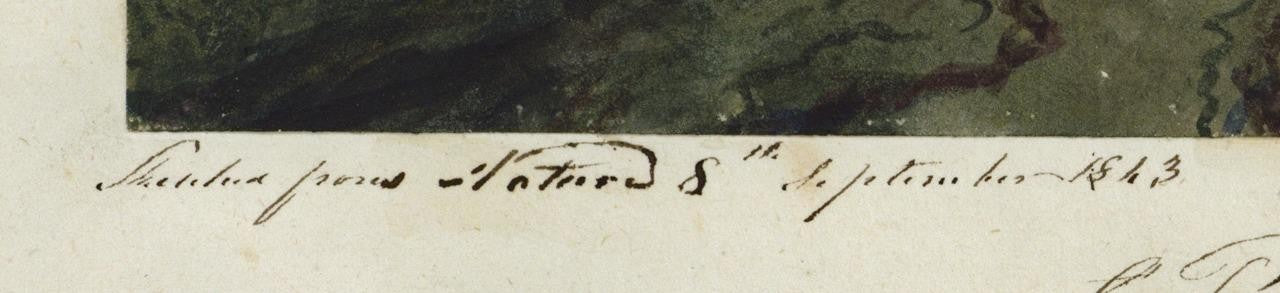 Sketched from Nature 8th September 1843